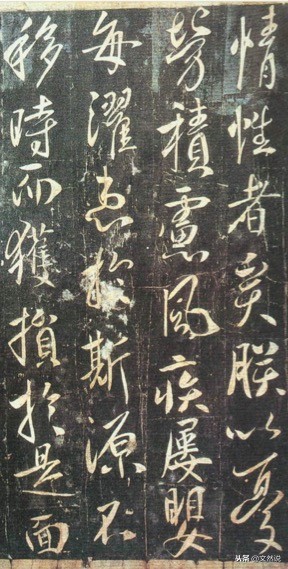 情性者矣朕以憂
勞積慮風疾屢嬰
每濯患於斯源不
移時而獲損於是面
头条 @文然说